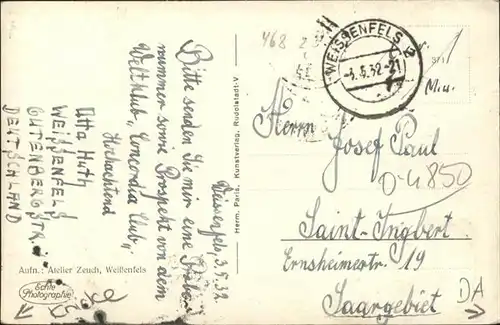 Weissenfels, 3.5.32.
Bitte senden Sie mir eine Probe-
nummer sowie Prospekt von dem
Weltklub „Concordia Club“,
Hochachtend
Otto Huth
WEIẞENFELS
GUTENBERGSTR.
DEUTSCHLAND
Aufn.: Atelier Zeuch, Weißenfels
Echte
Photographie
Herm. Paris, Kunstverlag, Rudolstadt-V
468
WEISSENFELS
-3.5.32-21
M.u.
Herrn
Josef Paul
D-4850
Saint-Ingbert
Ernsheimerstr. 19
Saargebiet
DA